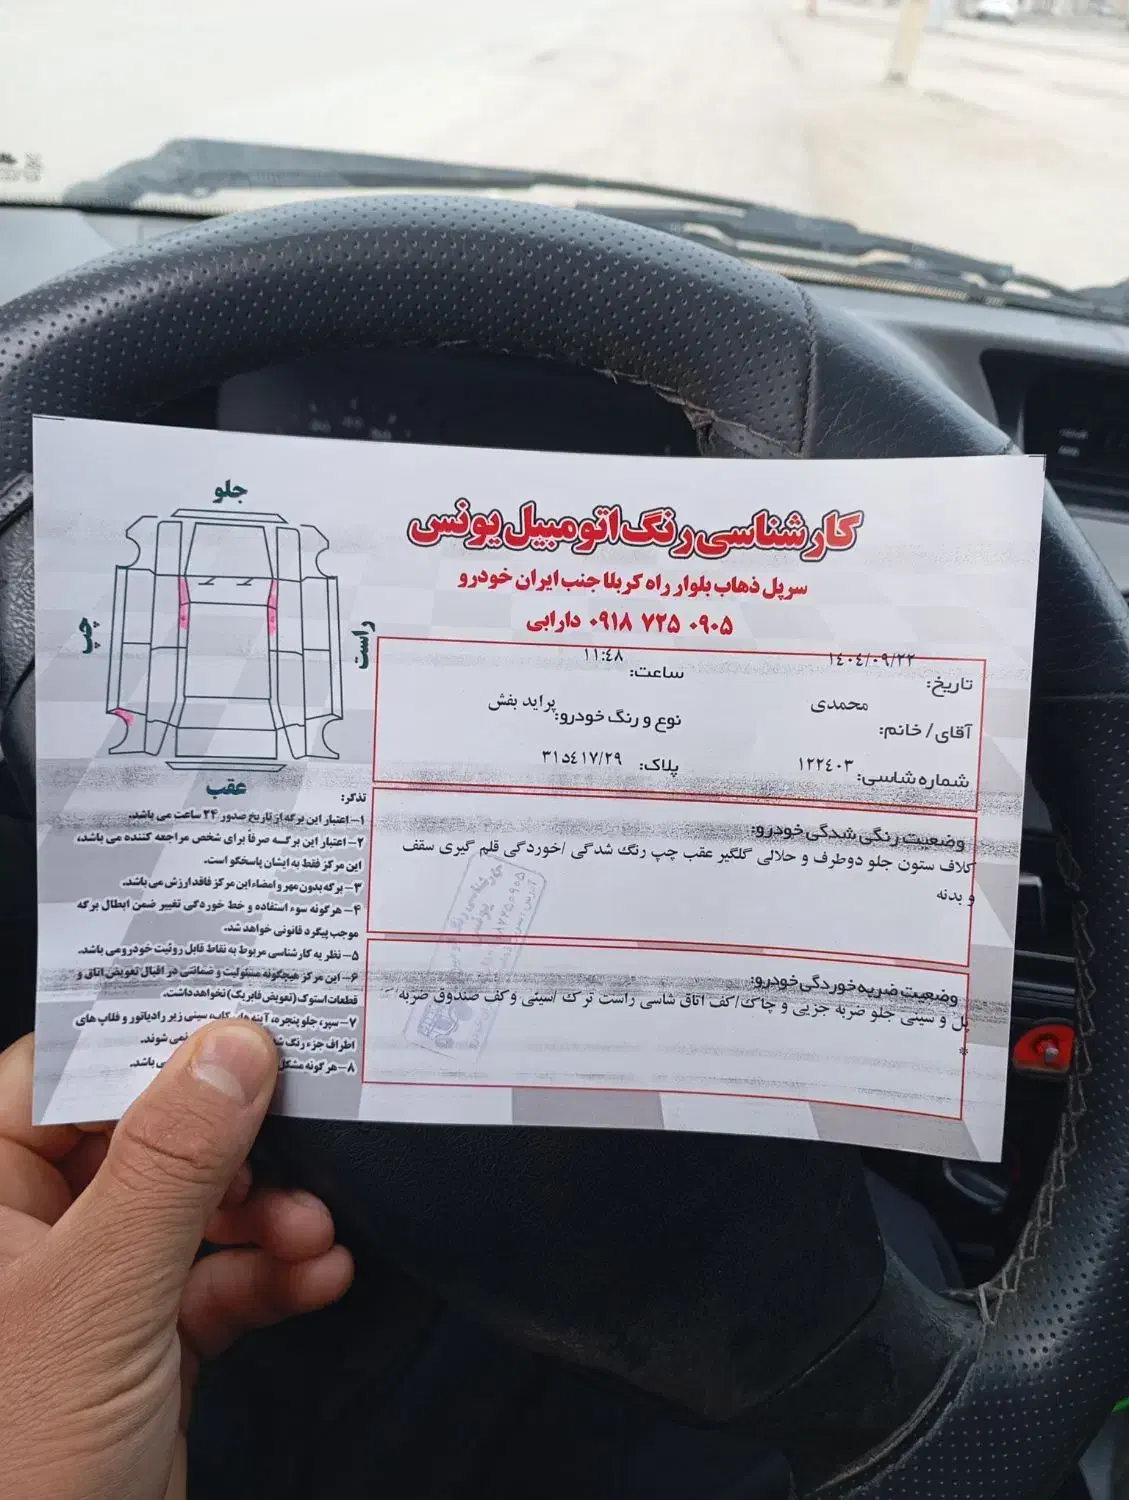 کارشناسی رنگ اتومبیل یونس
سرپل ذهاب بلوار راه کربلا جنب ایران خودرو
۰۹۱۸ ۷۲۵ ۰۹۰۵ دارابی
جلو
چپ
راست
عقب
تاریخ: ۱٤۰٤/۰۹/۲۲
ساعت: ۱۱:٤۸
آقای / خانم: محمدی
نوع و رنگ خودرو: پراید بفش
شماره شاسی: ۱۲۲٤۰۳
پلاک: ۳۱د٤۱۷/۲۹
وضعیت رنگی شدگی خودرو:
کلاف ستون جلو دوطرف و حلالی گلگیر عقب چپ رنگ شدگی /خوردگی قلم گیری سقف
و بدنه
وضعیت ضربه خوردگی خودرو:
پل و سینی جلو ضربه جزیی و چاک/کف اتاق شاسی راست ترک /سینی و کف صندوق ضربه/
*
تذکر:
۱- اعتبار این برگه از تاریخ صدور ۲۴ ساعت می باشد.
۲- اعتبار این برگه صرفاً برای شخص مراجعه کننده می باشد،
این مرکز فقط به ایشان پاسخگو است.
۳- برگه بدون مهر و امضاء این مرکز فاقد ارزش می باشد.
۴- هرگونه سوء استفاده و خط خوردگی تغییر ضمن ابطال برگه
موجب پیگرد قانونی خواهد شد.
۵- نظریه کارشناسی مربوط به نقاط قابل روئیت خودرو می باشد.
۶- این مرکز هیچگونه مسئولیت و ضمانتی در اقبال تعویض اتاق و
قطعات استوک (تعویض فابریک) نخواهد داشت.
۷- سپر، جلو پنجره، آینه های کاپ، سینی زیر رادیاتور و فلاپ های
اطراف جزء رنگ نمی شوند.
۸- هرگونه مشکل می باشد.